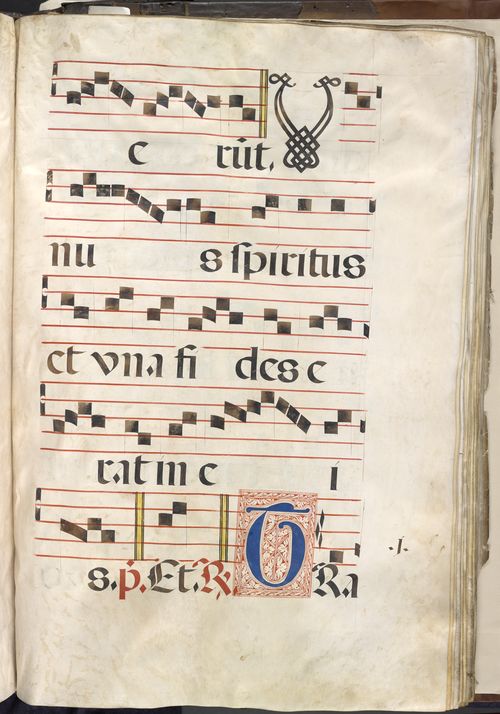 e rūt. V
nu s spiritus
et vna fi des e
rat in e i
s. p. Et. R. TRa
.I.